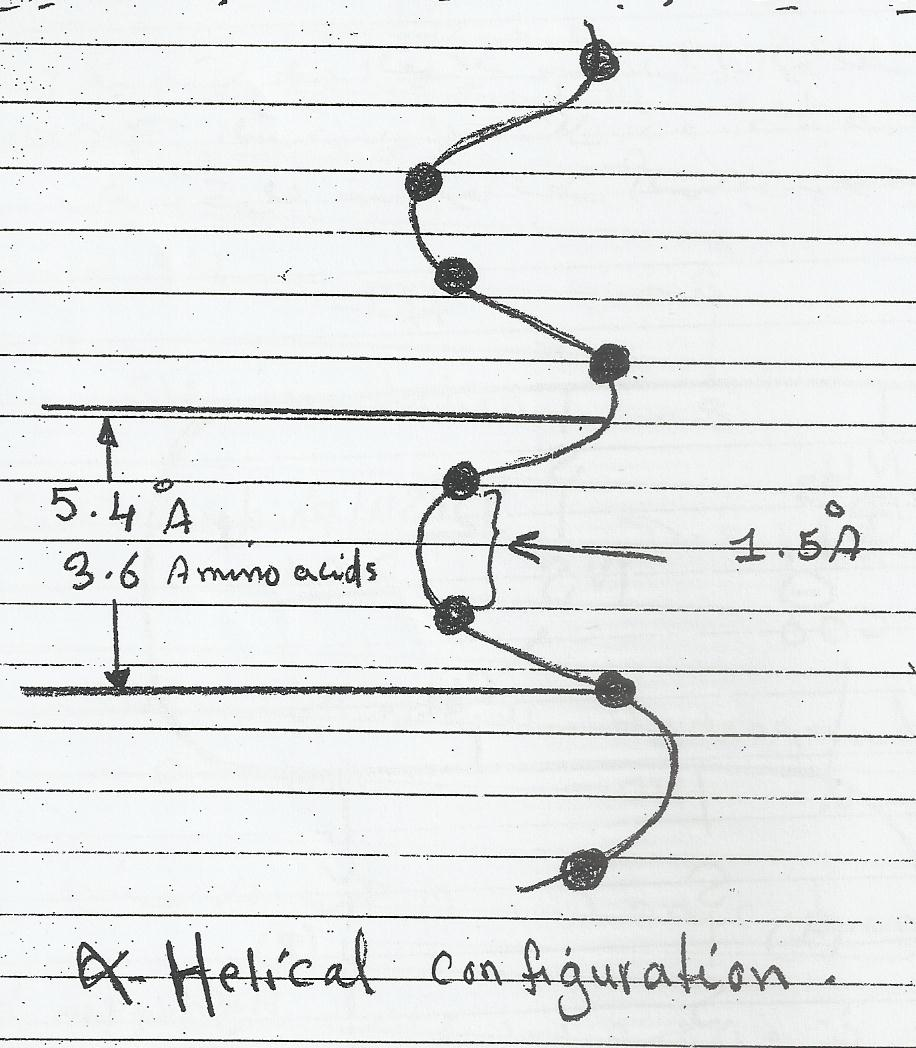 5.4 Å
1.5 Å
3.6 Amino acids
α-Helical configuration.